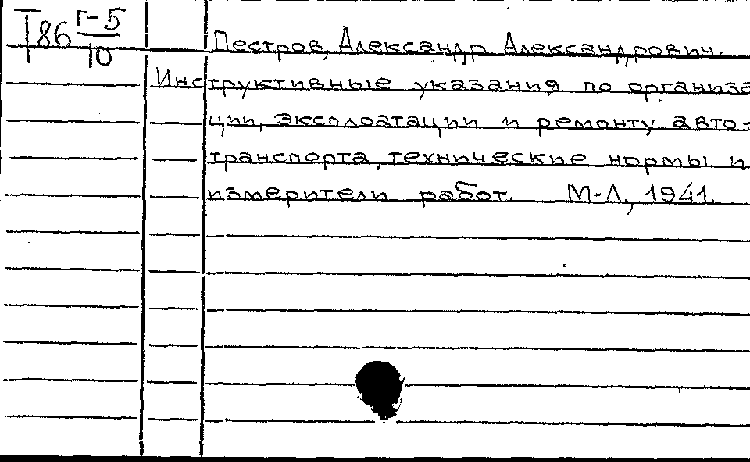 Т86 Г-5/10
Пестров, Александр Александрович.
Инструктивные указания по организа
ции, эксплоатации и ремонту авто-
транспорта, технические нормы и
измерители работ. М-Л, 1941.